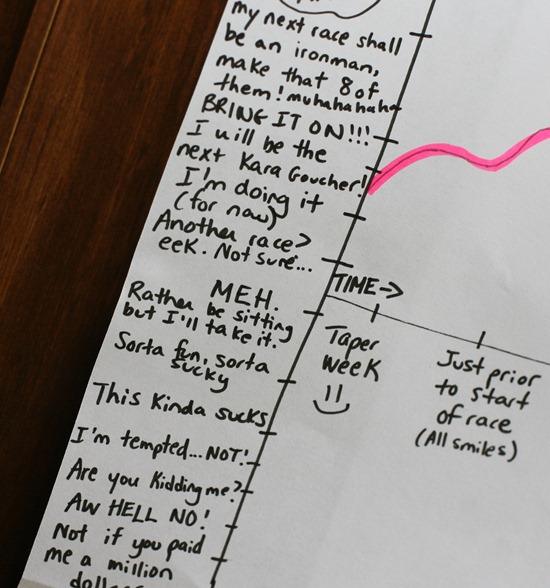 my next race shall
be an ironman,
make that 8 of
them! muhahahaha
BRING IT ON!!!
I will be the
next Kara Goucher!
I'm doing it
(for now)
Another race?
eek. Not sure...
MEH.
Rather be sitting
but I'll take it.
Sorta fun, sorta
sucky
This Kinda sucks
I'm tempted...NOT!
Are you Kidding me?
AW HELL NO!
Not if you paid
me a million
TIME→
Taper
week
Just prior
to start
of race
(All smiles)